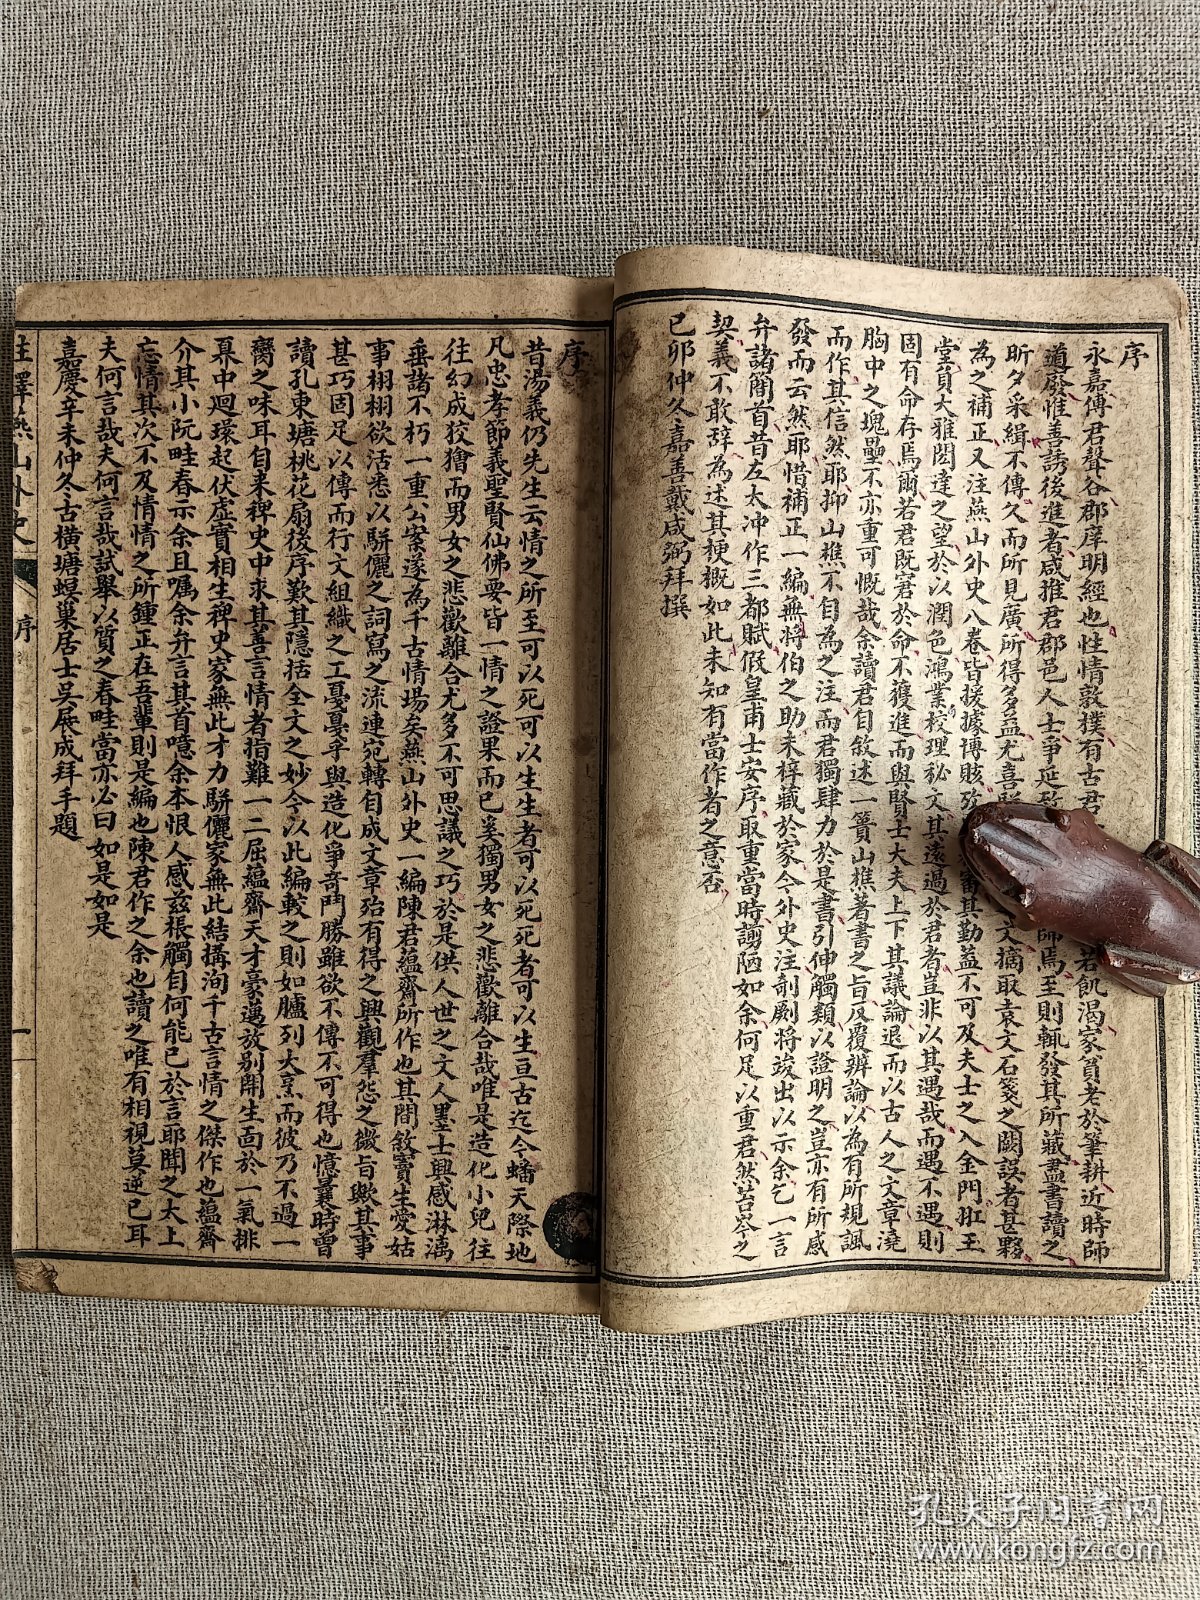 序
永嘉傅君聲谷郡庠明經也性情敦樸有古君
若飢渴家貧老於筆耕近時師
道廢惟善誘後進者咸推君郡邑人士爭延致
師焉至則輒發其所藏盡書讀之
昕夕采緝不傳久而所見廣所得多益尤喜
文摘取袁文石箋之闕誤者甚夥
為之補正又注燕山外史八卷皆援據博賅攷
審其勤益不可及夫士之入金門紆玉
堂負大雅閎達之望於以潤色鴻業校理秘文其遠過於君者豈非以其遇哉而遇不遇則
固有命存焉爾若君既窘於命不獲進而與賢士大夫上下其議論退而以古人之文章澆
胸中之塊壘不亦重可慨哉余讀君自敘述一簣山樵著書之旨反覆辨論以為有所規諷
而作其信然耶抑山樵不自為之注而君獨肆力於是書引伸觸類以證明之豈亦有所感
發而云然耶惜補正一編無將伯之助未梓藏於家今外史注剞劂將竣出以示余乞一言
弁諸簡首昔左太冲作三都賦假皇甫士安序取重當時謭陋如余何足以重君然苔岑之
契義不敢辞為述其梗概如此未知有當作者之意否
己卯仲夂嘉善戴咸弼拜撰
序
昔湯義仍先生云情之所至可以死可以生生者可以死死者可以生亘古迄今蟠天際地
凡忠孝節義聖賢仙佛要皆一情之證果而已奚獨男女之悲歡離合哉唯是造化小兒往
往幻成狡獪而男女之悲歡離合尤多不可思議之巧於是供人世之文人墨士興感淋漓
垂諸不朽一重公案遂為千古情場矣燕山外史一編陳君蘊齋所作也其間敘竇生愛姑
事栩栩欲活悉以駢儷之詞寫之流連宛轉自成文章殆有得之興觀羣怨之微旨歟其事
甚巧固足以傳而行文組織之工戞戞乎與造化爭奇鬥勝雖欲不傳不可得也憶曩時曾
讀孔東塘桃花扇後序歎其隱括全文之妙今以此編較之則如臚列大烹而彼乃不過一
臠之味耳自来稗史中求其善言情者指難一二屈蘊齋天才豪邁放别開生面於一氣排
奡中迴環起伏虛實相生稗史家無此才力駢儷家無此結搆洵千古言情之傑作也蘊齋
介其小阮畦春示余且囑余弁言其首噫余本恨人感兹棖觸自何能已於言耶聞之太上
忘情其次不及情情之所鍾正在吾輩則是編也陳君作之余也讀之唯有相視莫逆已耳
夫何言哉夫何言哉試舉以質之春畦當亦必曰如是如是
嘉慶辛未仲夂古橫塘螟巢居士吳展成拜手題
註釋燕山外史
序
一
孔夫子旧书网
www.kongfz.com